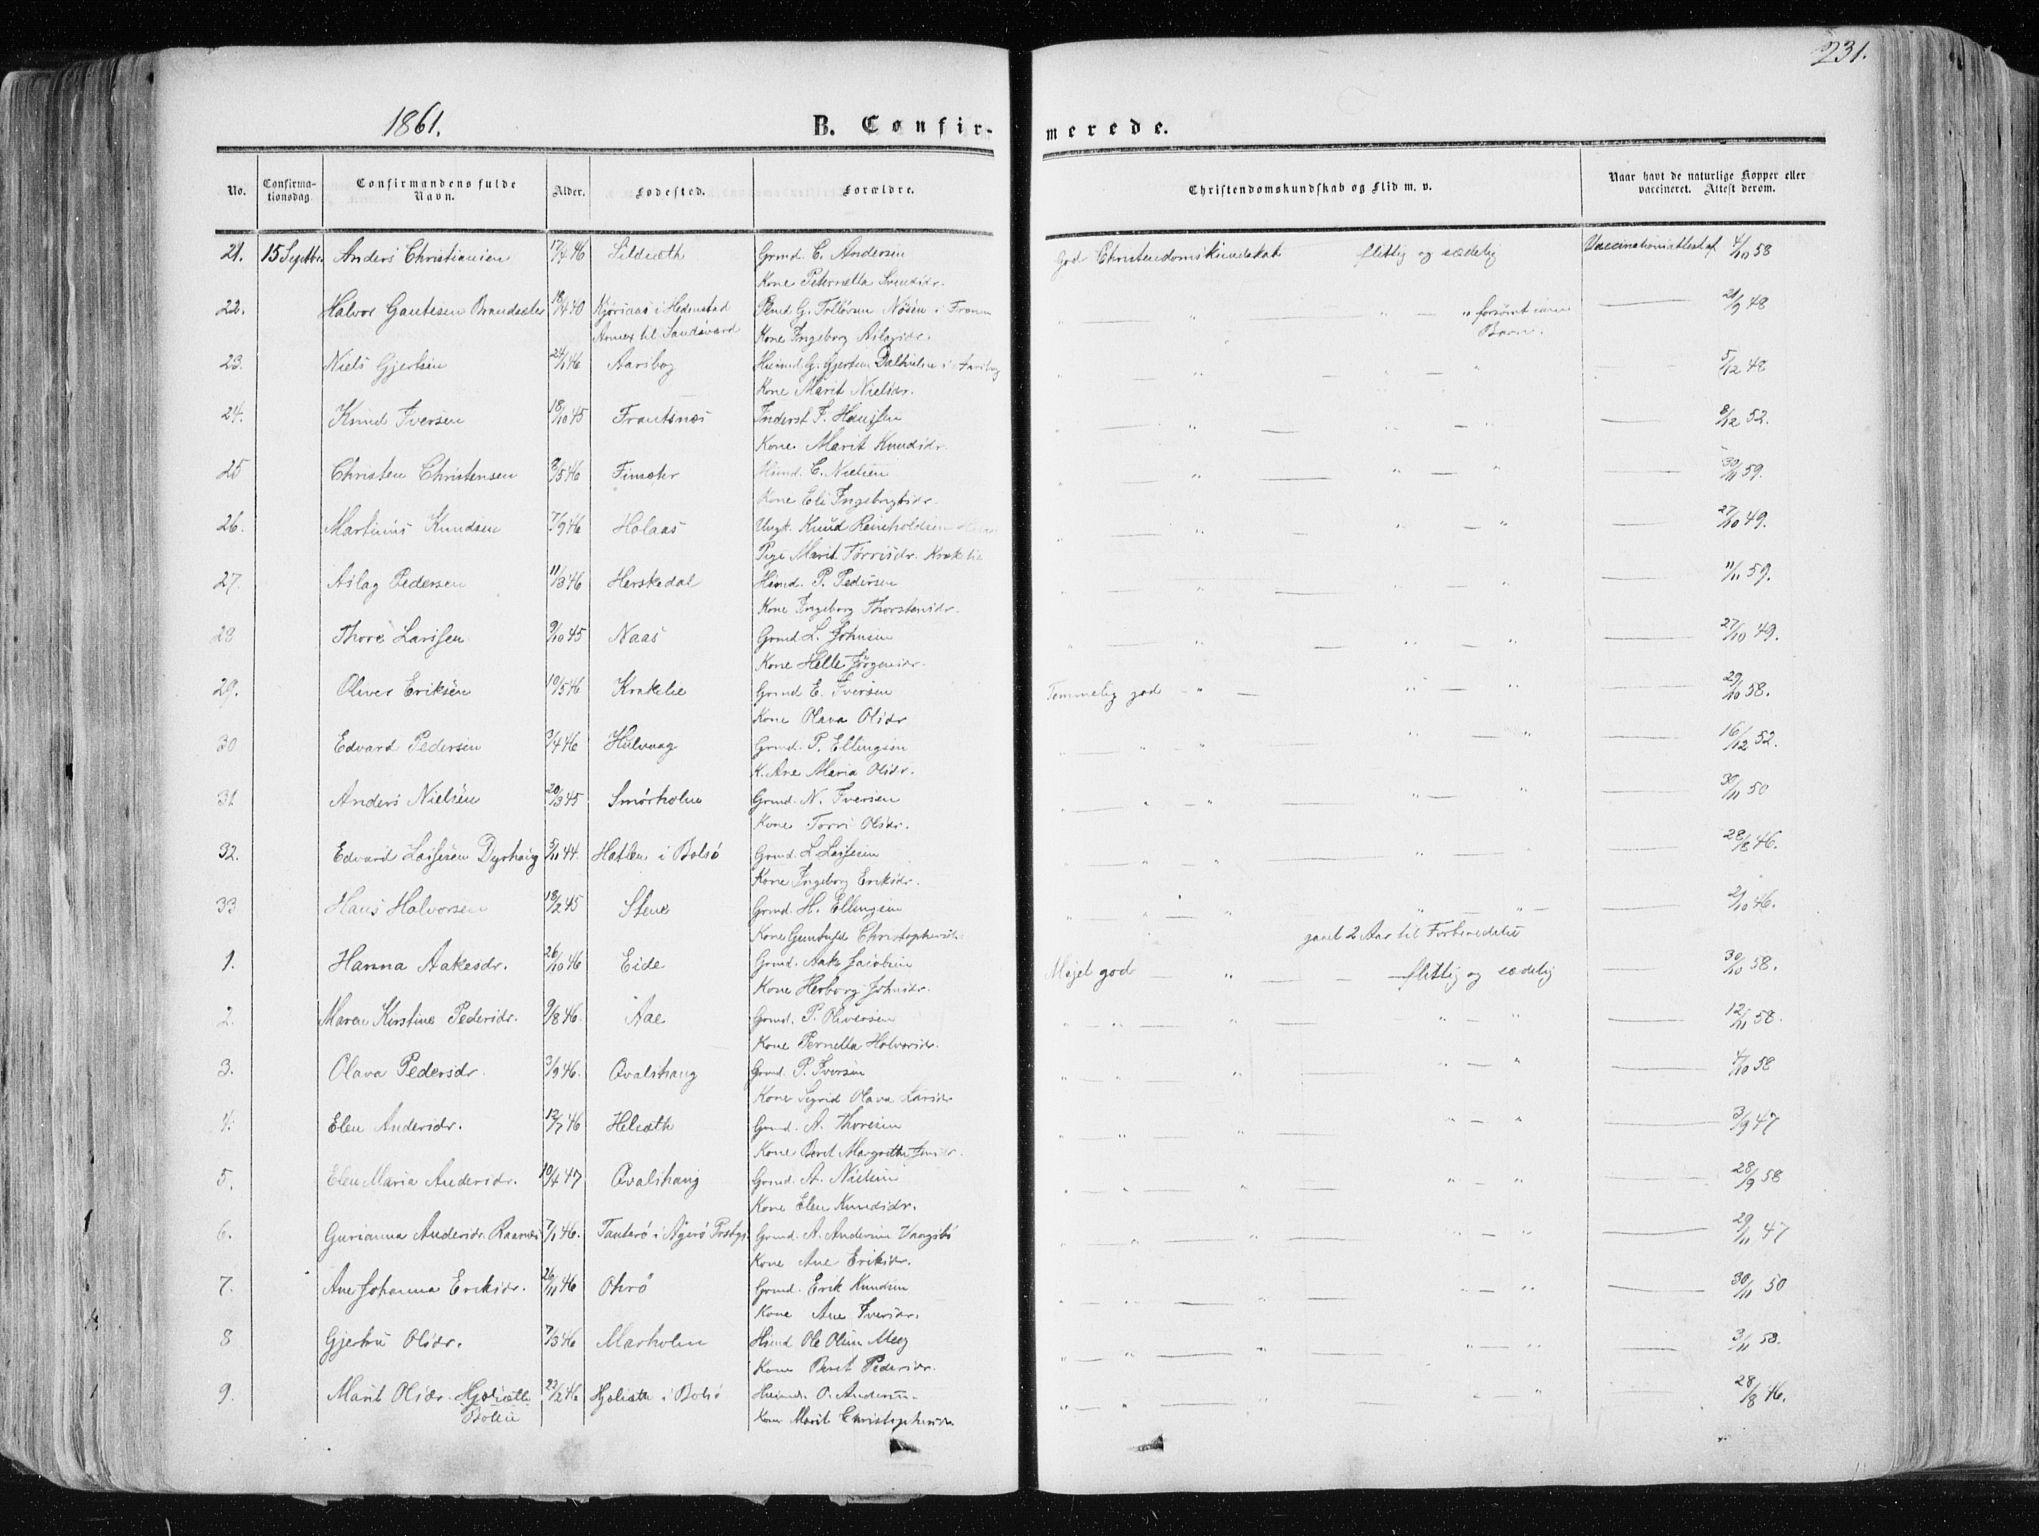 231.
1861.
B. Confir-
merede.
No.
Confirma-
tionsdag
Confirmandens fulde
Navn.
Alder.
Fødested.
Forældre.
Christendomskundskab og Flid m. v.
Naar havt de naturlige Kopper eller
vaccineret. Attest derom.
21. 15 Septbr. Anders Christiansen 17/4 46 Sildsæth Grmd. C. Andersen god Christendomskundskab flittig og sædelig Vaccinationsattest af 4/10 58
Kone Peternella Svendsdr.
22. Halvor Gautesen 18/4 40 i Hedenstad G. i " " - " forsømt som 21/9 48
Annex til Sandsværd Kone Ingeborg Aslagsdr. Barn.
23. Niels Gjertsen 24/1 46 Aarsbog G. Gjertsen i Aarsbog " " " - " 5/12 48
Kone Marit Nielsdr.
24. Knud Iversen 18/10 45 Frantsnæs Inderst I. Hansen " " " - " 8/12 52.
Kone Marit Knudsdr.
25 Christen Christensen 8/5 46 Finsæter Hsmd. C. Nielsen " " " - " 30/11 59.
Kone Eli Ingebrigtsdr.
26. Martinus Knudsen 7/9 46 Holaas Ungk. Knud Reinholdsen " " " - " 27/10 49.
Pige Marit Torrisdr. Krakelie
27. Aslag Pedersen 11/3 46 Herskedal Hsmd. P. Pedersen " " " - " 11/11 59.
Kone Ingeborg Thorstensdr.
28 Thore Larssen 9/10 45 Naas Grmd L. Johnsen " " " " 27/10 49.
Kone Helle Jørgensdr.
29. Oliver Eriksen 10/5 46 Krakelie Grmd E. Iversen Temmelig god - " - " - " 29/10 58.
Kone Olava Olsdr
30 Edvard Pedersen 3/4 46 Hulvaag Grmd. P. Ellingsen " " " " - " 16/12 52.
K. Ane Maria Olsdr.
31 Anders Nielsen 20/3 45 Smørholm Grmd. N. Iversen " " - " " - " 30/11 50
Kone Torri Olsdr.
32. Edvard Lassesen Dyrhaug 5/11 44. Hatlen i Bolsø Grmd. L. Lassesen " " " - " 28/8 46.
Kone Ingeborg Eriksdr.
33 Hans Halvorsen 18/2 45 Stene Grmd. H. Ellingsen " " - " " - " - 21/10 46.
Kone Gunhild Christophersdr. gaaet 2 Aar til Forberedelse
1. Hanna Aakesdr. 26/10 46 Eide Grmd. Aake Jacobsen Meget god - " - flittig og sædelig 30/10 58.
Kone Herborg Johnsdr.
2. Maren Kirstine Pedersdr. 9/8 46. Aae Grmd. P. Oliversen " " " - " 12/11 58.
Kone Pernella Halvorsdr.
3. Olava Pedersdr. 3/9 46. Qvalshaug Grmd. P. Iversen " " " " - " 4/10 58
Kone Sigrid Olava Larsdr
4. Elen Andersdr. 12/7 46 Helsæth Grmd. A. Thoresen " " " - " 3/9 47
Kone Beret Margrethe Jensdr.
5. Elen Maria Andersdr. 10/4 47 Qvalshaug Grmd. A. Nielsen " - " " - " 28/9 58
Kone Elen Knudsdr.
6. Gurianna Andersdr. Raanæs 7/1 46. Tanterø i Agerø Præstgj. Grmd. A. Andersen " " " - " 29/11 47
Kone Ane Eriksdr.
7. Ane Johanna Eriksdr. 26/11 46 Otrø Grmd. Erik Knudsen " " " - " 30/11 50
Kone Ane Iversdr.
8 Gjertru Olsdr. 7/3 46 Marholm Hsmd Ole Olsen Meeg " - " " - " 3/11 58.
Kone Beret Pedersdr.
9. Marit Olsdr. Hjelsætte 22/2 46 Hjelsæth i Bolsø O. Andersen " - " - " 28/8 46.
Bolsø Kone Marit Christophersdr.